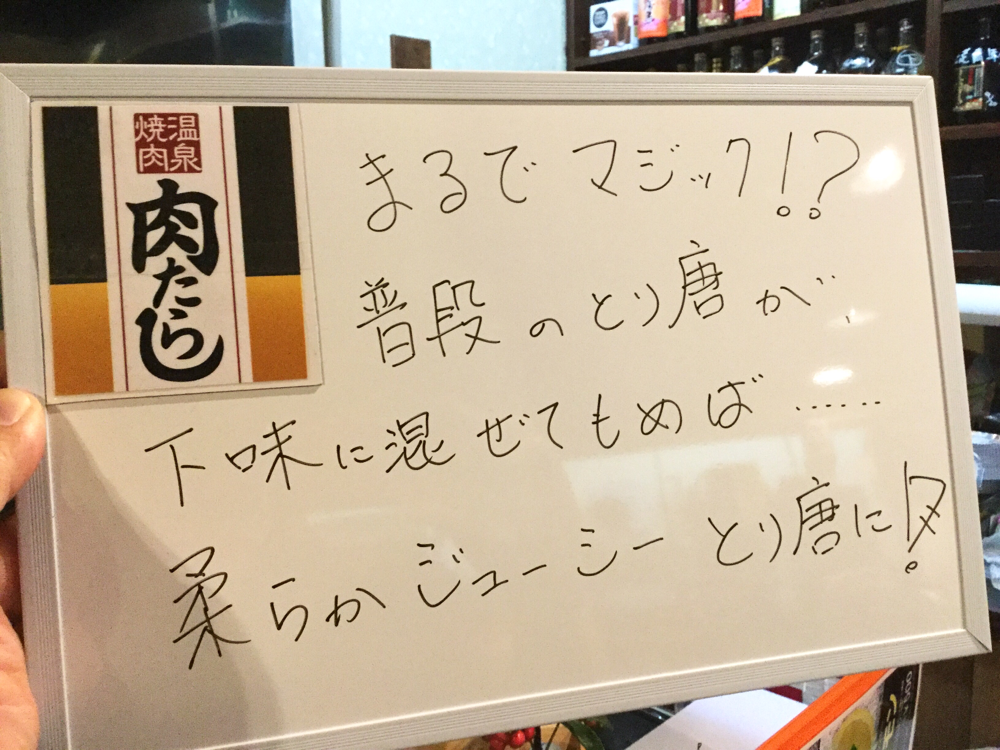 温泉
焼肉
肉たらし
まるでマジック!?
普段のとり唐が、
下味に混ぜてもめば……
柔らかジューシーとり唐に!